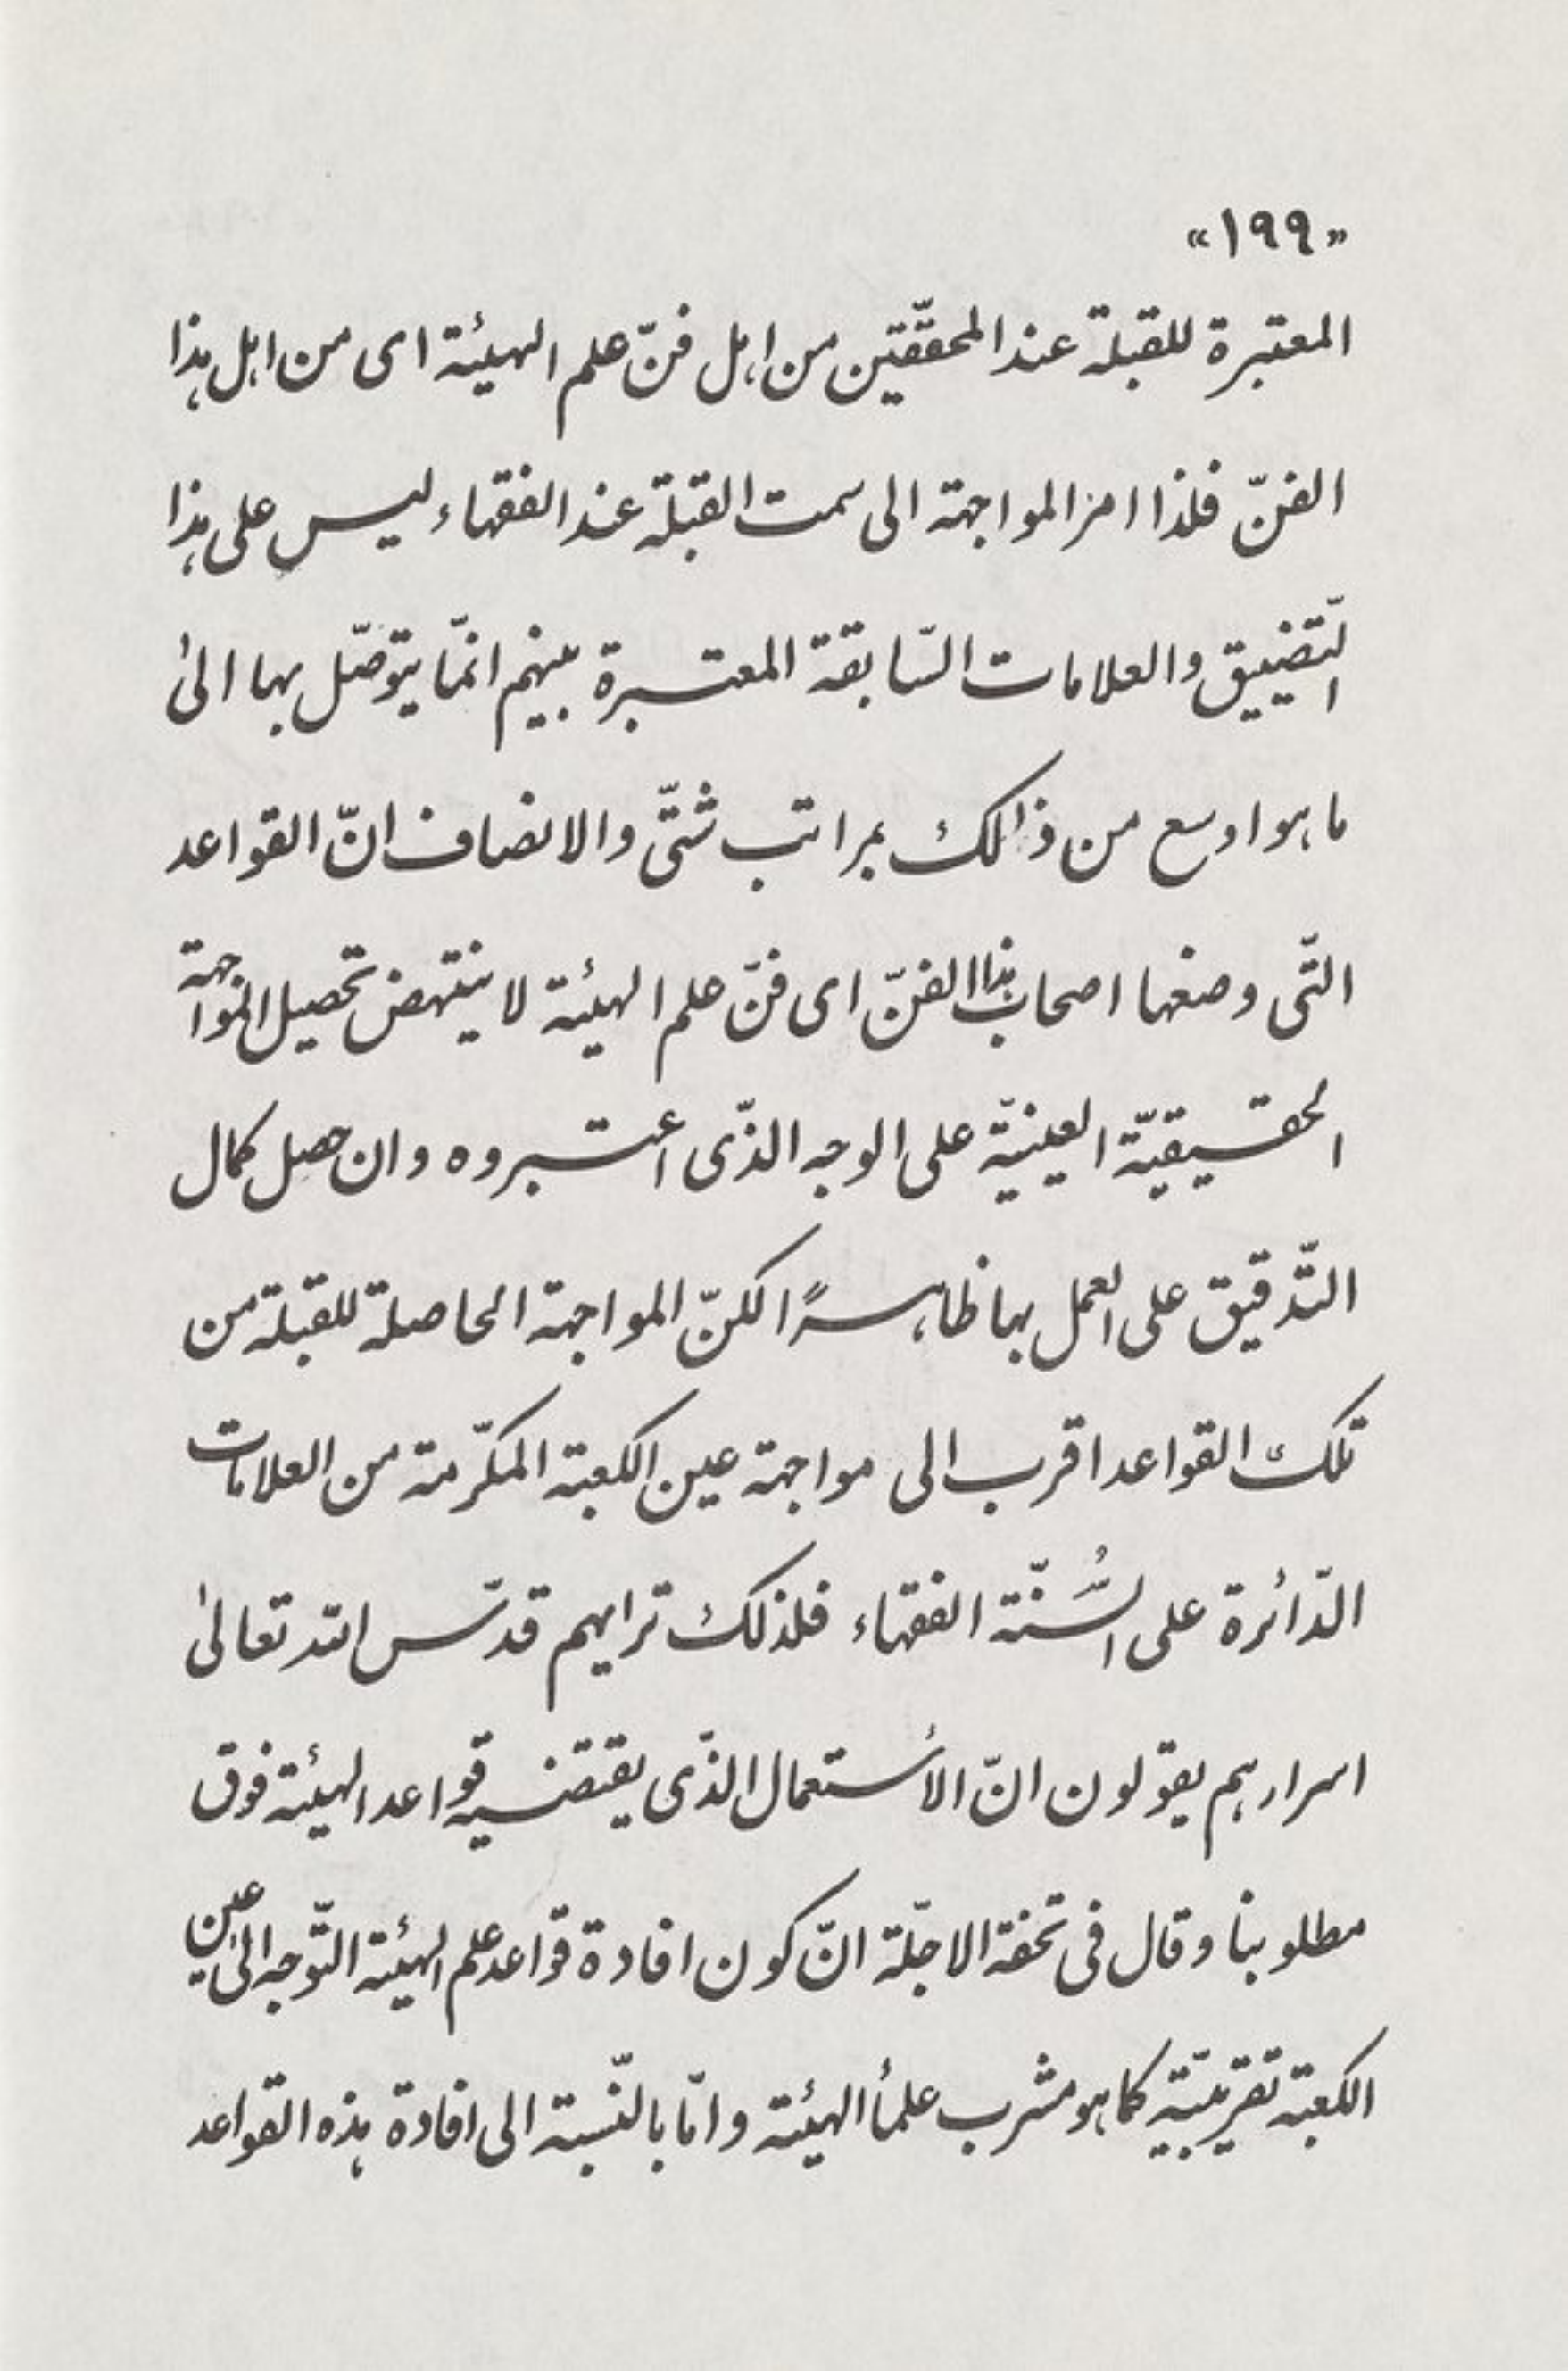 «١٩٩»
المعتبرة للقبلة عند المحققّين من اهل فنّ علم الهيئة اى من اهل هذا
الفنّ فلذا امر المواجهة الى سمت القبلة عند الفقهاء ليس على هذا
التّضييق والعلامات السّابقة المعتبرة بينهم انمّا يتوصّل بها الىٰ
ما هو اوسع من ذالك بمراتب شتىّ والانصاف انّ القواعد
التّى وضعها اصحاب هذا الفنّ اى فنّ علم الهيئة لا ينتهض تحصيل المواجهة
الحقيقيّة العينيّة على الوجه الذّى اعتبروه وان حصل كمال
التّدقيق على العمل بها ظاهرًا لكنّ المواجهة الحاصلة للقبلة من
تلك القواعد اقرب الى مواجهة عين الكعبة المكرّمة من العلامات
الدّائرة على السُّنّة الفقهاء فلذلك تراهم قدّس الله تعالىٰ
اسرارهم يقولون انّ الأستعمال الذّى يقتضيه قواعد الهيئة فوق
مطلوبنا وقال فى تحفة الاجلّة انّ كون افادة قواعد علم الهيئة التّوجه الىٰ عين
الكعبة تقريبيّة كما هو مشرب علمأ الهيئة وامّا بالنّسبة الى افادة هذه القواعد